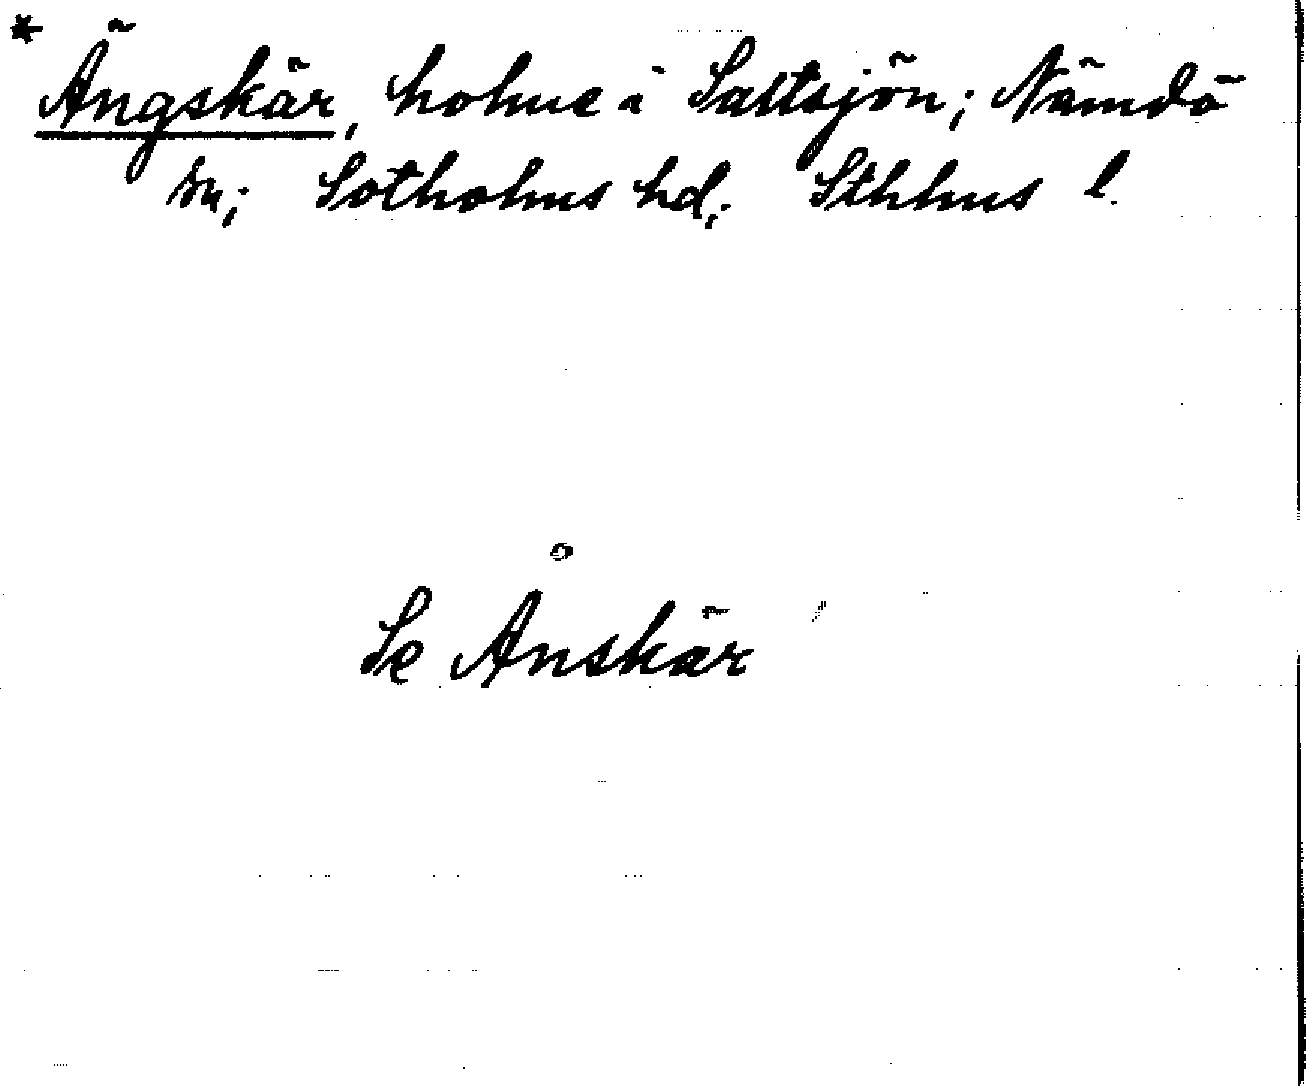 * Ängskär, holme i Saltsjön; Nämdö
sn; Sotholms hd; Sthlms l.
Se Ånskär